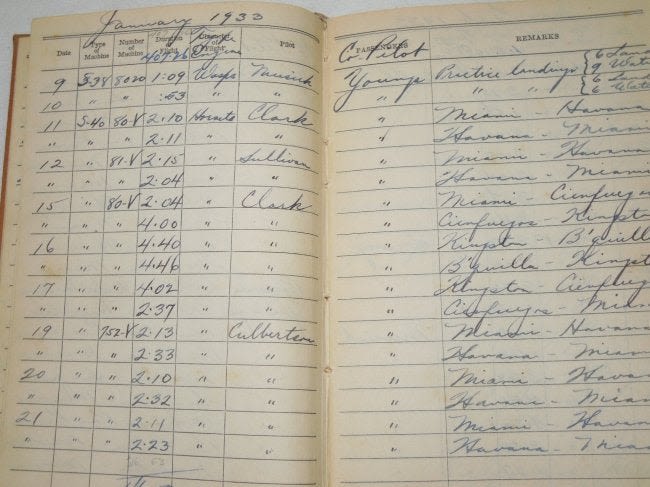 January 1933
Date Type of Machine Number of Machine Duration of Flight Character of Flight Pilot PASSENGERS REMARKS
Engines Co-Pilot
9 S-38 8020 1:09 Wasps Musick Young Practice landings { 6 Land 9 Water
10 " " :53 " " " " " { 6 Land 6 Water
11 S-40 80-V 2.10 Hornets Clark " Miami Havana
" " " 2.11 " " " Havana - Miami
12 " 81-V 2.15 " Sullivan " Miami - Havana
" " " 2.04 " " " Havana - Miami
15 " 80-V 2.04 " Clark " Miami - Cienfuegos
" " " 4.00 " " " Cienfuegos - Kingston
16 " " 4.40 " " " Kingston - B'quilla
" " " 4.46 " " " B'quilla - Kingston
17 " " 4.02 " " " Kingston - Cienfuegos
" " " 2.37 " " " Cienfuegos - Miami
19 " 752-V 2.13 " Culbertson " Miami - Havana
" " " 2.33 " " " Havana - Miami
20 " " 2.10 " " " Miami - Havana
" " " 2.32 " " " Havana - Miami
21 " " 2.11 " " " Miami - Havana
" " " 2.23 " " " Havana - Miami